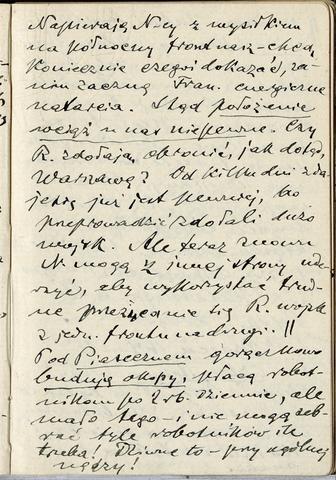 Napierają N-cy z wysiłkiem
na północny front nasz – chcą
koniecznie czegoś dokazać, za-
nim zaczną Fran. energiczne
natarcia. Stąd położenie
wciąż u nas niepewne. Czy
R. zdołają obronić, jak dotąd,
Warszawę? Od kilku dni zda-
je się już jest pewniej, bo
przeprowadzić zdołali dużo
wojsk. Ale teraz znowu
N. mogą z innej strony ude-
rzyć, aby wykorzystać trud-
ne przerzucanie się R. wojsk
z jedn. frontu na drugi. ||
Pod Piasecznem gorączkowo
budują okopy, płacą robot-
nikom po 2 rb. dziennie, ale
mało tego – i nie mogą zeb-
rać tyle robotników ile
trzeba! Dziwne to – przy ogólnej
nędzy!